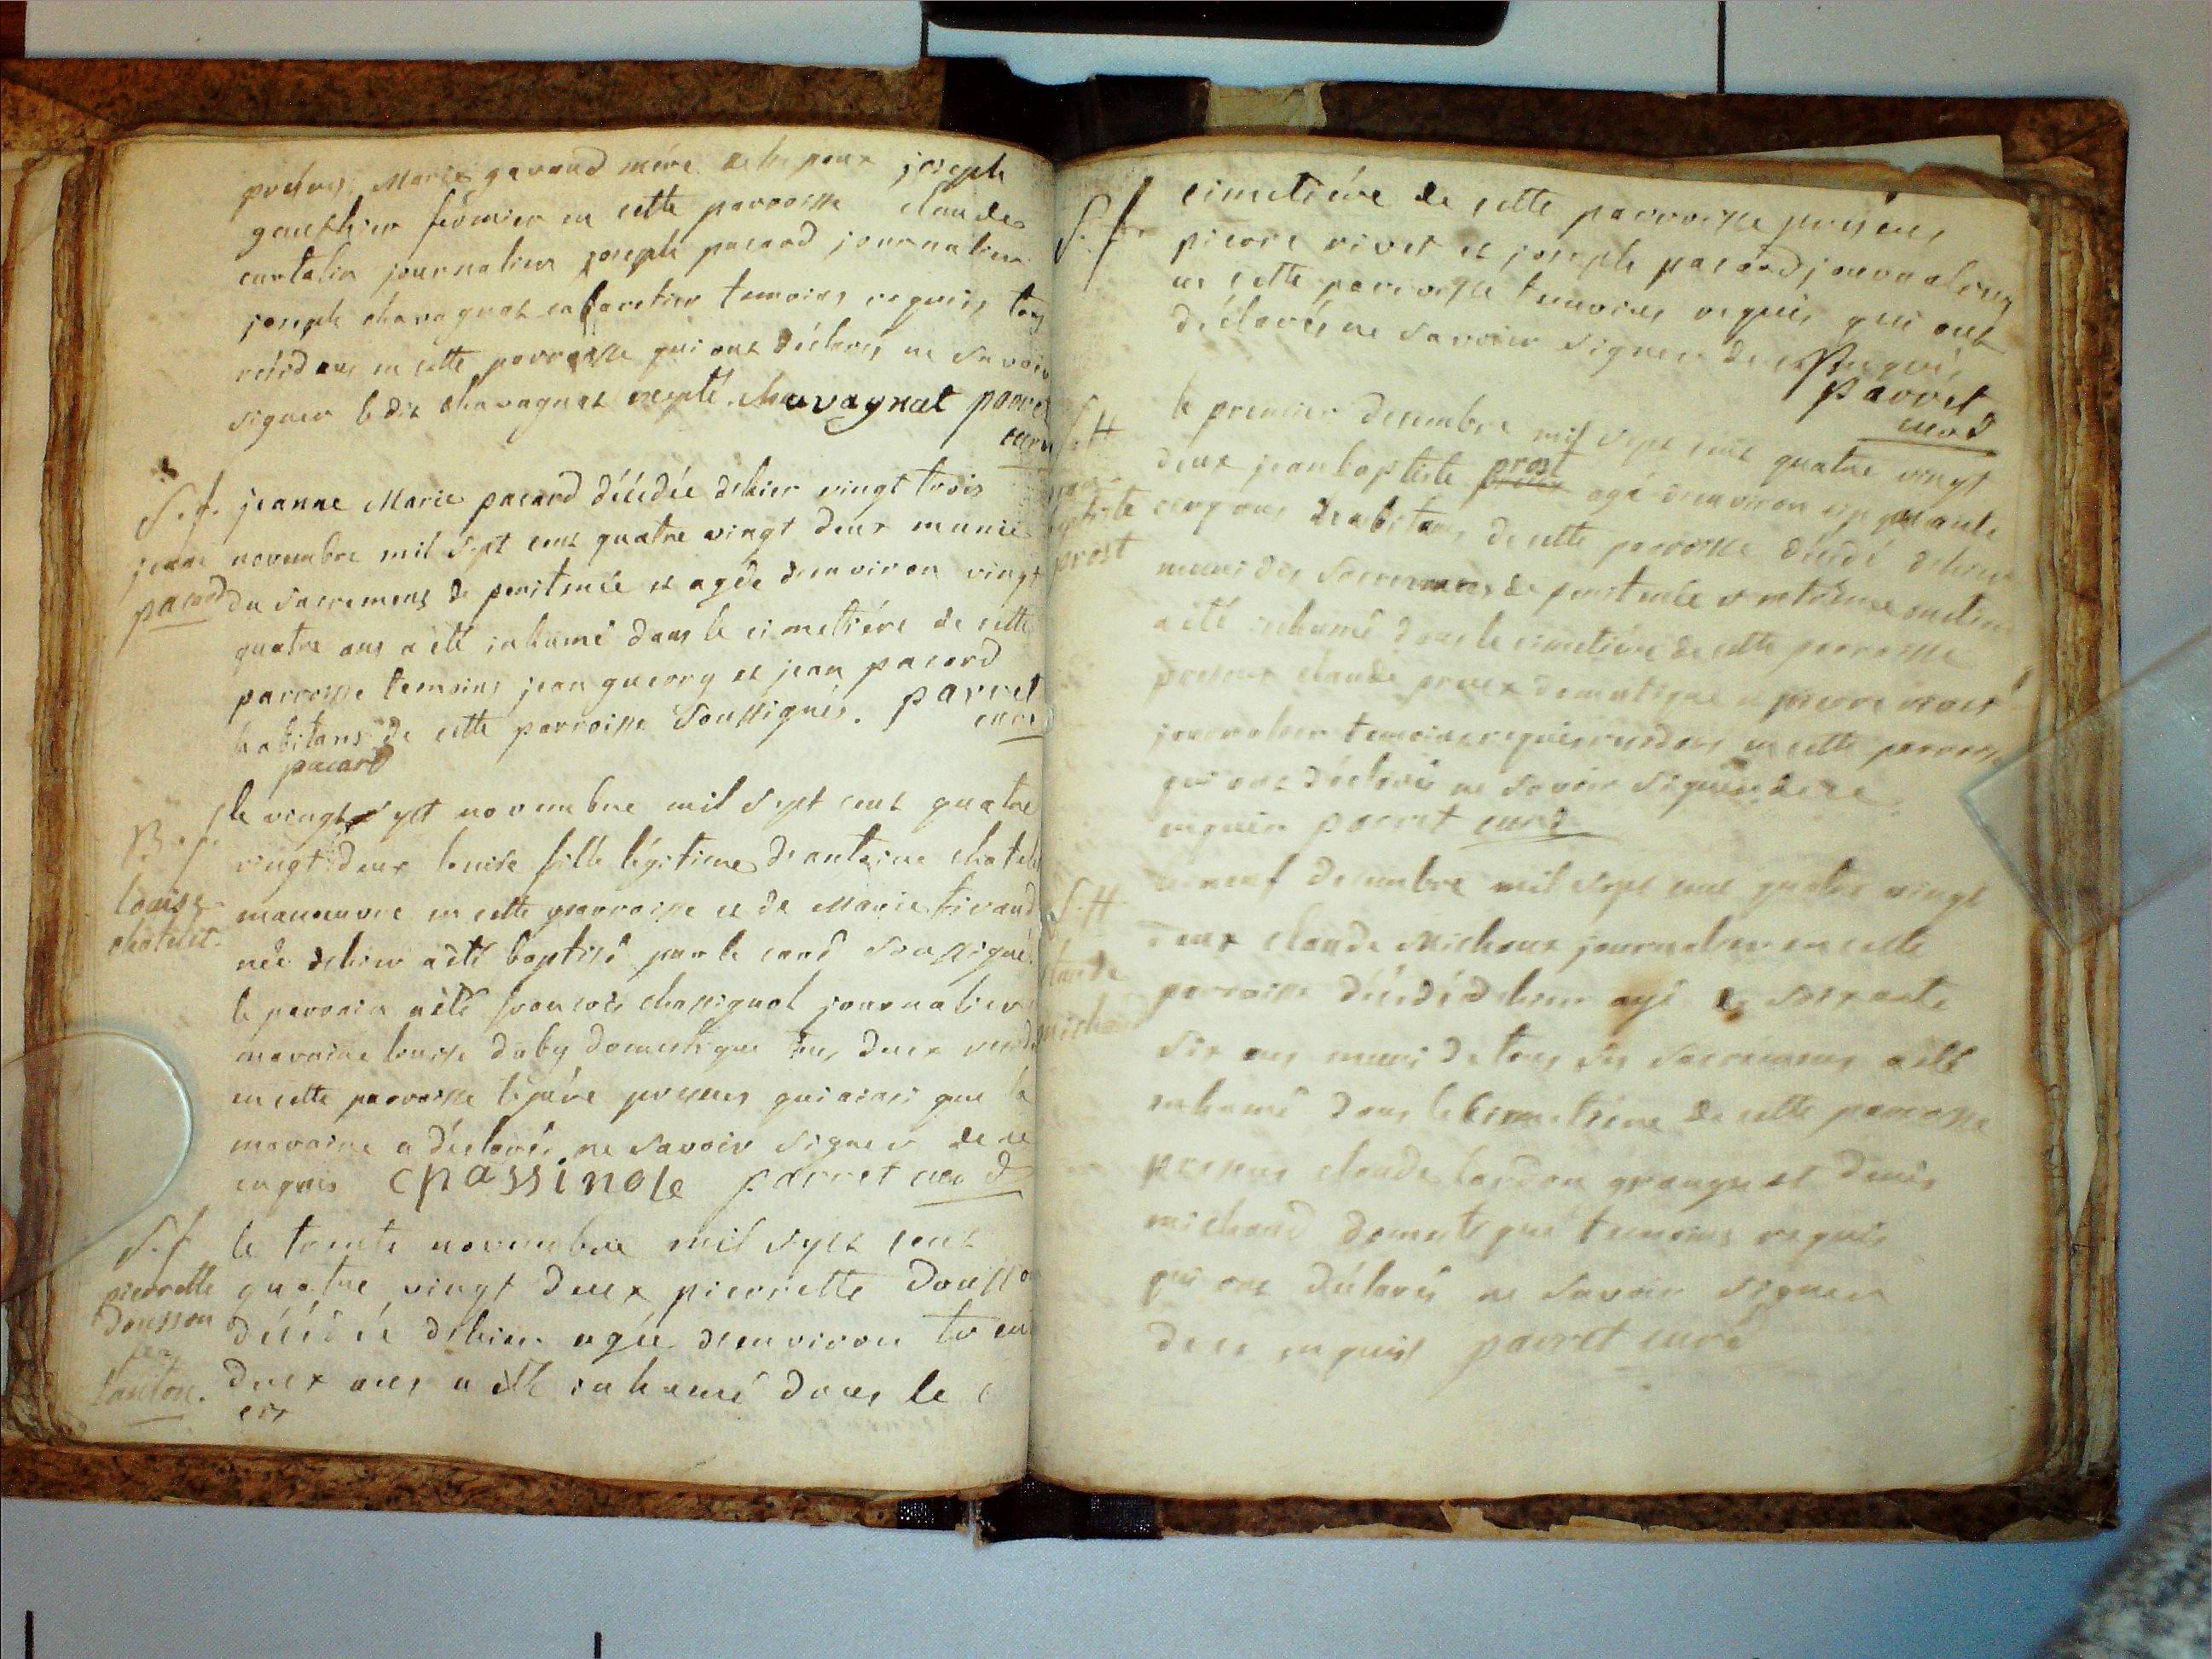 Marie gavand mère joseph
gauthier fermier en cette parroisse claude
curtalin journalier joseph pacard journalier
joseph chavagnat cabaretier temoins requis tous
résidans en cette parroisse qui ont déclarés ne savoir
signer ledit chavagnat excepté. chavagnat parret
curé
S. f. jeanne Marie pacard décédée dehier vingt trois
jeane novembre mil sept cent quatre vingt deux munie
pacard du sacremens de penitence et agée denviron vingt
quatre ans a été inhumé dans le cimetiére de cette
parroisse temoins jean guerry et jean pacard
habitans de cette parroisse soussignés. parret
pacard curé
le vingt sept novembre mil sept cent quatre
B. f. vingt deux louise fille légitime dantoine chatelet
louise manœuvre en cette parroisse et de Marie
chatelet. née dehier a été baptisé par le curé soussigné.
le parrain a été francois chassignol journalier
maraine louise daby domestique tous deux
en cette parroisse le père présens qui ainsi que la
maraine a déclarés ne savoir signer de ce
enquis cpassinole parret curé
S. f le trente novembre mil sept cent
pierrette quatre vingt deux pierrette dousson
dousson décédée dehier agée denviron
deux ans a été inhumé dans le
cim
S. f. cimetiére de cette parroisse présens
pierre rivet et joseph pacard journaliers
en cette parroisse temoins requis qui ont
déclarés ne savoir signer de ce enquis
parret
curé
S. H le premier decembre mil sept cent quatre vingt
deux jean baptiste prost agé denviron
baptiste cinq ans habitans de cette parroisse décédé dehier
prost muni des sacremens de penitence
a été inhumé dans le cimetiére de cette parroisse
présens claude domestique et pierre rivet
journalier temoins requis résidans en cette parroisse
qui ont déclarés ne savoir signer de ce
enquis parret curé
le neuf decembre mil sept cent quatre vingt
S. H deux claude Michaux journalier en cette
claude parroisse décédé dehier agé de soixante
michaud six ans muni de tous ses sacremens a été
inhumé dans le cimetiére de cette parroisse
présens claude lardon granger et denis
michaud domestique temoins requis
qui ont déclarés ne savoir signer
de ce enquis parret curé